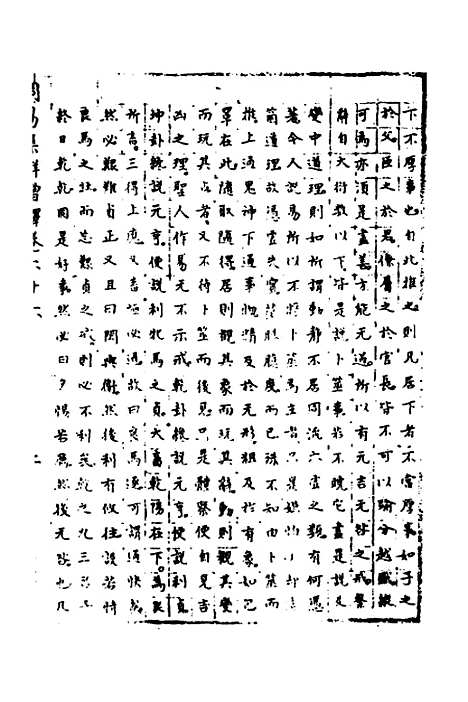 下不厚事也自此推之則凡居下者不當厚事如子之
於父臣之於君僚屬之於官長皆不可以踰分越職縱
可為亦須是盡善方能无過所以有元吉无咎之戒繫
辭自大衍數以下皆是說卜筮事若不曉它盡是說及
變中道理則如所謂動靜不居周流六虛之類有何憑
著今人說易所以不將卜筮為主者只是嫌怕
道理故憑虛失實臆度而已殊不知由卜筮而
推上通鬼神下通事物精及於无形粗及於有象如已
罩在此隨取隨得居則觀其象而玩其辭動則觀其變
而玩其占者又不待卜筮而後見只是體察便自見吉
凶之理聖人作易无不示戒乾卦纔說元亨便說利貞
坤卦纔說元亨便說利牝馬之貞大畜乾陽在下為艮
所畜三得上應又畜極必通故曰良馬逐可謂通快矣
然必艱難貞正又且曰閑輿衛然後利有攸往設若恃
良馬之壯而忘艱貞之戒則必不利矣乾之九三
終日乾乾固是好事然必曰夕惕若厲然後无咎也凡
周易集解增釋卷六十六